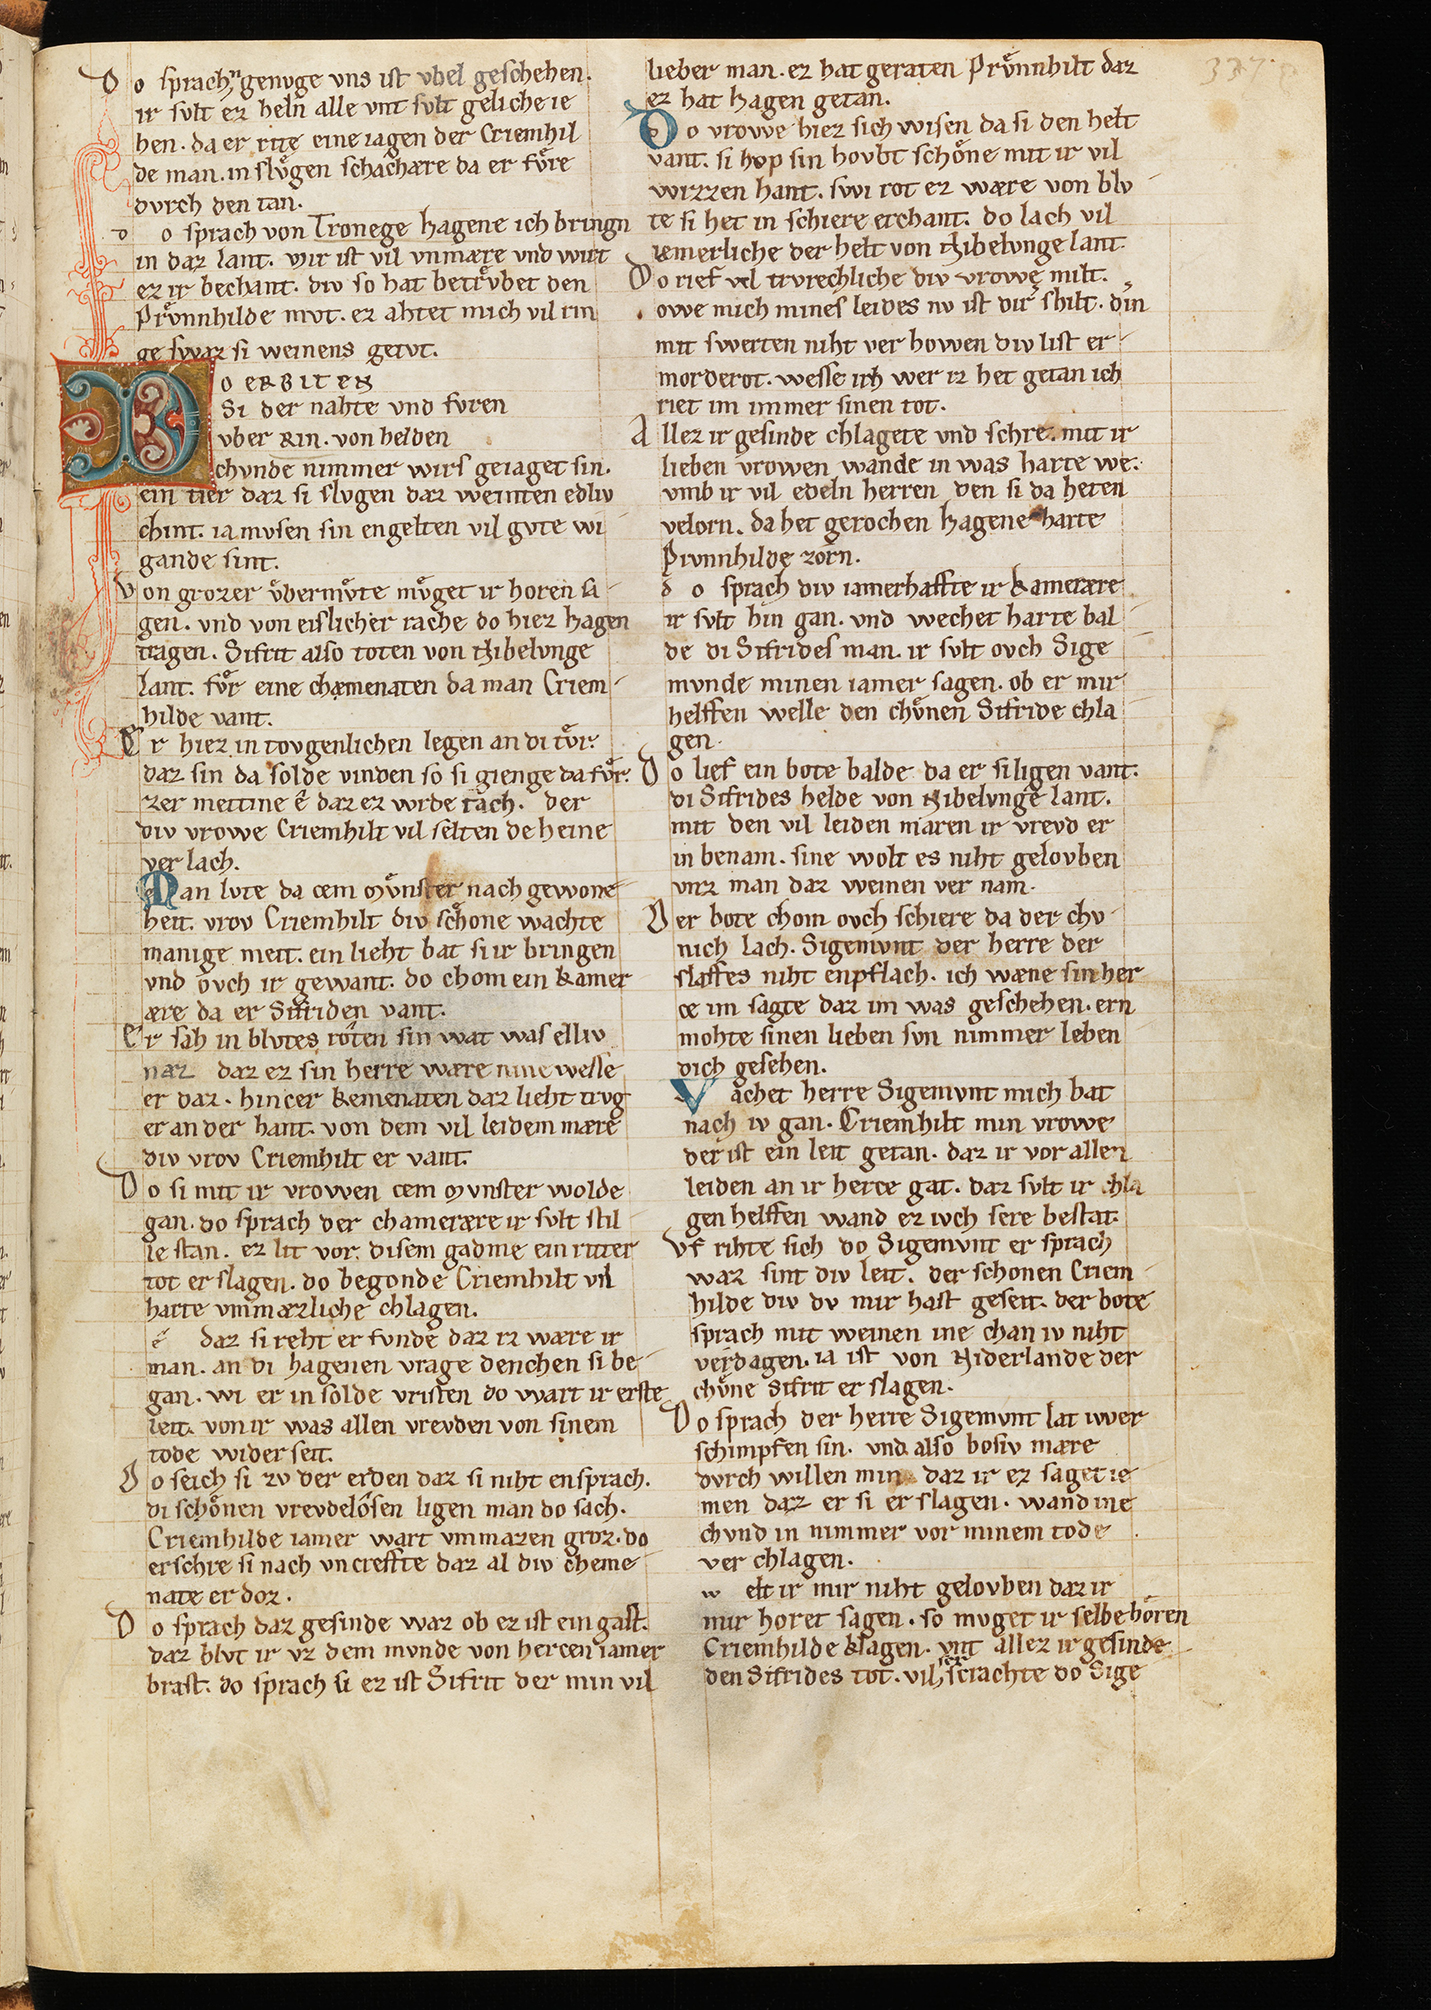 Do sprachn genvge vns ist vbel geschehen.
ir svlt ez heln alle vnt svlt geliche ie
hen. da er rite eine iagen der Criemhil
de man. in slvͦgen schachære da er fvͤre
dvrch den tan.
do sprach von Tronege Hagene ich bringn
in daz lant. mir ist vil vnmære vnd wirt
ez ir bechant. div so hat betrvͤbet den
Prvͤnnhilde mvt. ez ahtet mich vil rin
ge swaz si weinens getvt.
DO ERBITEN
Si der nahte vnd fvren
vber Rin. von helden
chvnde nimmer wirs geiaget sin.
ein tier daz si slvgen daz weinten edliv
chint. ia mvsen sin engelten vil gvte wi
gande sint.
Von grozer vͤbermvͤte mvͤget ir horen sa
gen. vnd von eislicher rache do hiez Hagen
tragen. Sifrit also toten von Nibelvnge
lant. fvͤr eine chæmenaten da man Criem
hilde vant.
Er hiez in tovgenlichen legen an di tvͤr.
daz sin da solde vinden so si gienge da fvͤr.
zer mettine ê daz ez wrde tach. der
div vrowe Criemhilt vil selten deheine
ver lach.
Man lvte da cem mvͤnster nach gewone
heit. vrov Criemhilt div schoͤne wachte
manige meit. ein lieht bat si ir bringen
vnd ovch ir gewant. do chom ein kamer
ære da er Sifriden vant.
Er sah in blvtes roͤten sin wat was elliv
naz daz ez sin herre wære nine wesse
er daz. hincer kemenaten daz lieht trvg
er an der hant. von dem vil leidem mære
div vrov Criemhilt er vant.
Do si mit ir vrowen cem mvnster wolde
gan. do sprach der chamerære ir svlt stil
le stan. ez lit vor disem gadme ein ritter
tot er slagen. do begonde Criemhilt vil
harte vnmæzliche chlagen.
e daz si reht er fvnde daz iz wære ir
man. an di hagenen vrage denchen si be
gan. wi er in solde vristen do wart ir erste
leit. von ir was allen vrevden von sinem
tode wider seit.
Do seich si zv der erden daz si niht ensprach.
di schoͤnen vrevdelosen ligen man do sach.
Criemhilde iamer wart vnmazen groz. do
erschre si nach vncreffte daz al div cheme
nate er doz.
Do sprach daz gesinde waz ob ez ist ein gast.
daz blvt ir vz dem mvnde von hercen iamer
brast. do sprach si ez ist Sifrit der min vil
lieber man. ez hat geraten Prvͤnnhilt daz
ez hat Hagen getan.
Do vrowe hiez sich wisen da si den helt
vant. si hvp sin hovbt schoͤne mit ir vil
wizzen hant. swi rot ez wære von blv
te si het in schiere erchant. do lach vil
iæmerliche der helt von Nibelvnge lant.
Do rief vil trvrechliche div vrowe milt.
owe mich mines leides nv ist dir shilt. din
mit swerten niht ver howen div list er
morderot. wesse ich wer iz het getan ich
riet im immer sinen tot.
Allez ir gesinde chlagete vnd schre. mit ir
lieben vrowen wande in was harte we.
vmb ir vil edeln herren den si da heten
velorn. da het gerochen Hagene harte
Prvnnhilde zorn.
do sprach div iamerhaffte ir kamerære
ir svlt hin gan. vnd wechet harte bal
de di Sifrides man. ir svlt ovch Sige
mvnde minen iamer sagen. ob er mir
helffen welle den chvͤnen Sifride chla
gen.
Do lief ein bote balde da er si ligen vant.
di Sifrides helde von Nibelvnge lant.
mit den vil leiden mæren ir vrevd er
in benam. sine wolt es niht gelovben
vnz man daz weinen ver nam.
Der bote chom ovch schiere da der chv
nich lach. Sigemvnt der herre der
slaffes niht enpflach. ich wæne sin her
ce im sagte daz im was geschehen. ern
mohte sinen lieben svn nimmer leben
dich gesehen.
Vachet herre Sigemvnt mich bat
nach iv gan. Criemhilt min vrowe
der ist ein leit getan. daz ir vor allen
leiden an ir herce gat. daz svlt ir chla
gen helffen wand ez ivch sere bestat.
Vf rihte sich do Sigemvnt er sprach
waz sint div leit. der schonen Criem
hilde div dv mir hast geseit. der bote
sprach mit weinen ine chan iv niht
verdagen. ia ist von Niderlande der
chvͤne Sifrit er slagen.
Do sprach der herre Sigemvnt lat iwer
schimpfen sin. vnd also bosiv mære
dvrch willen min daz ir ez saget ie
men daz er si er slagen. wand ine
chvnd in nimmer vor minem tode
ver chlagen.
w elt ir mir niht gelovben daz ir
mir horet sagen. so mvget ir selbe horen
Criemhilde klagen. vnt allez ir gesinde
den Sifrides tot. vil sere sciachte do Sige